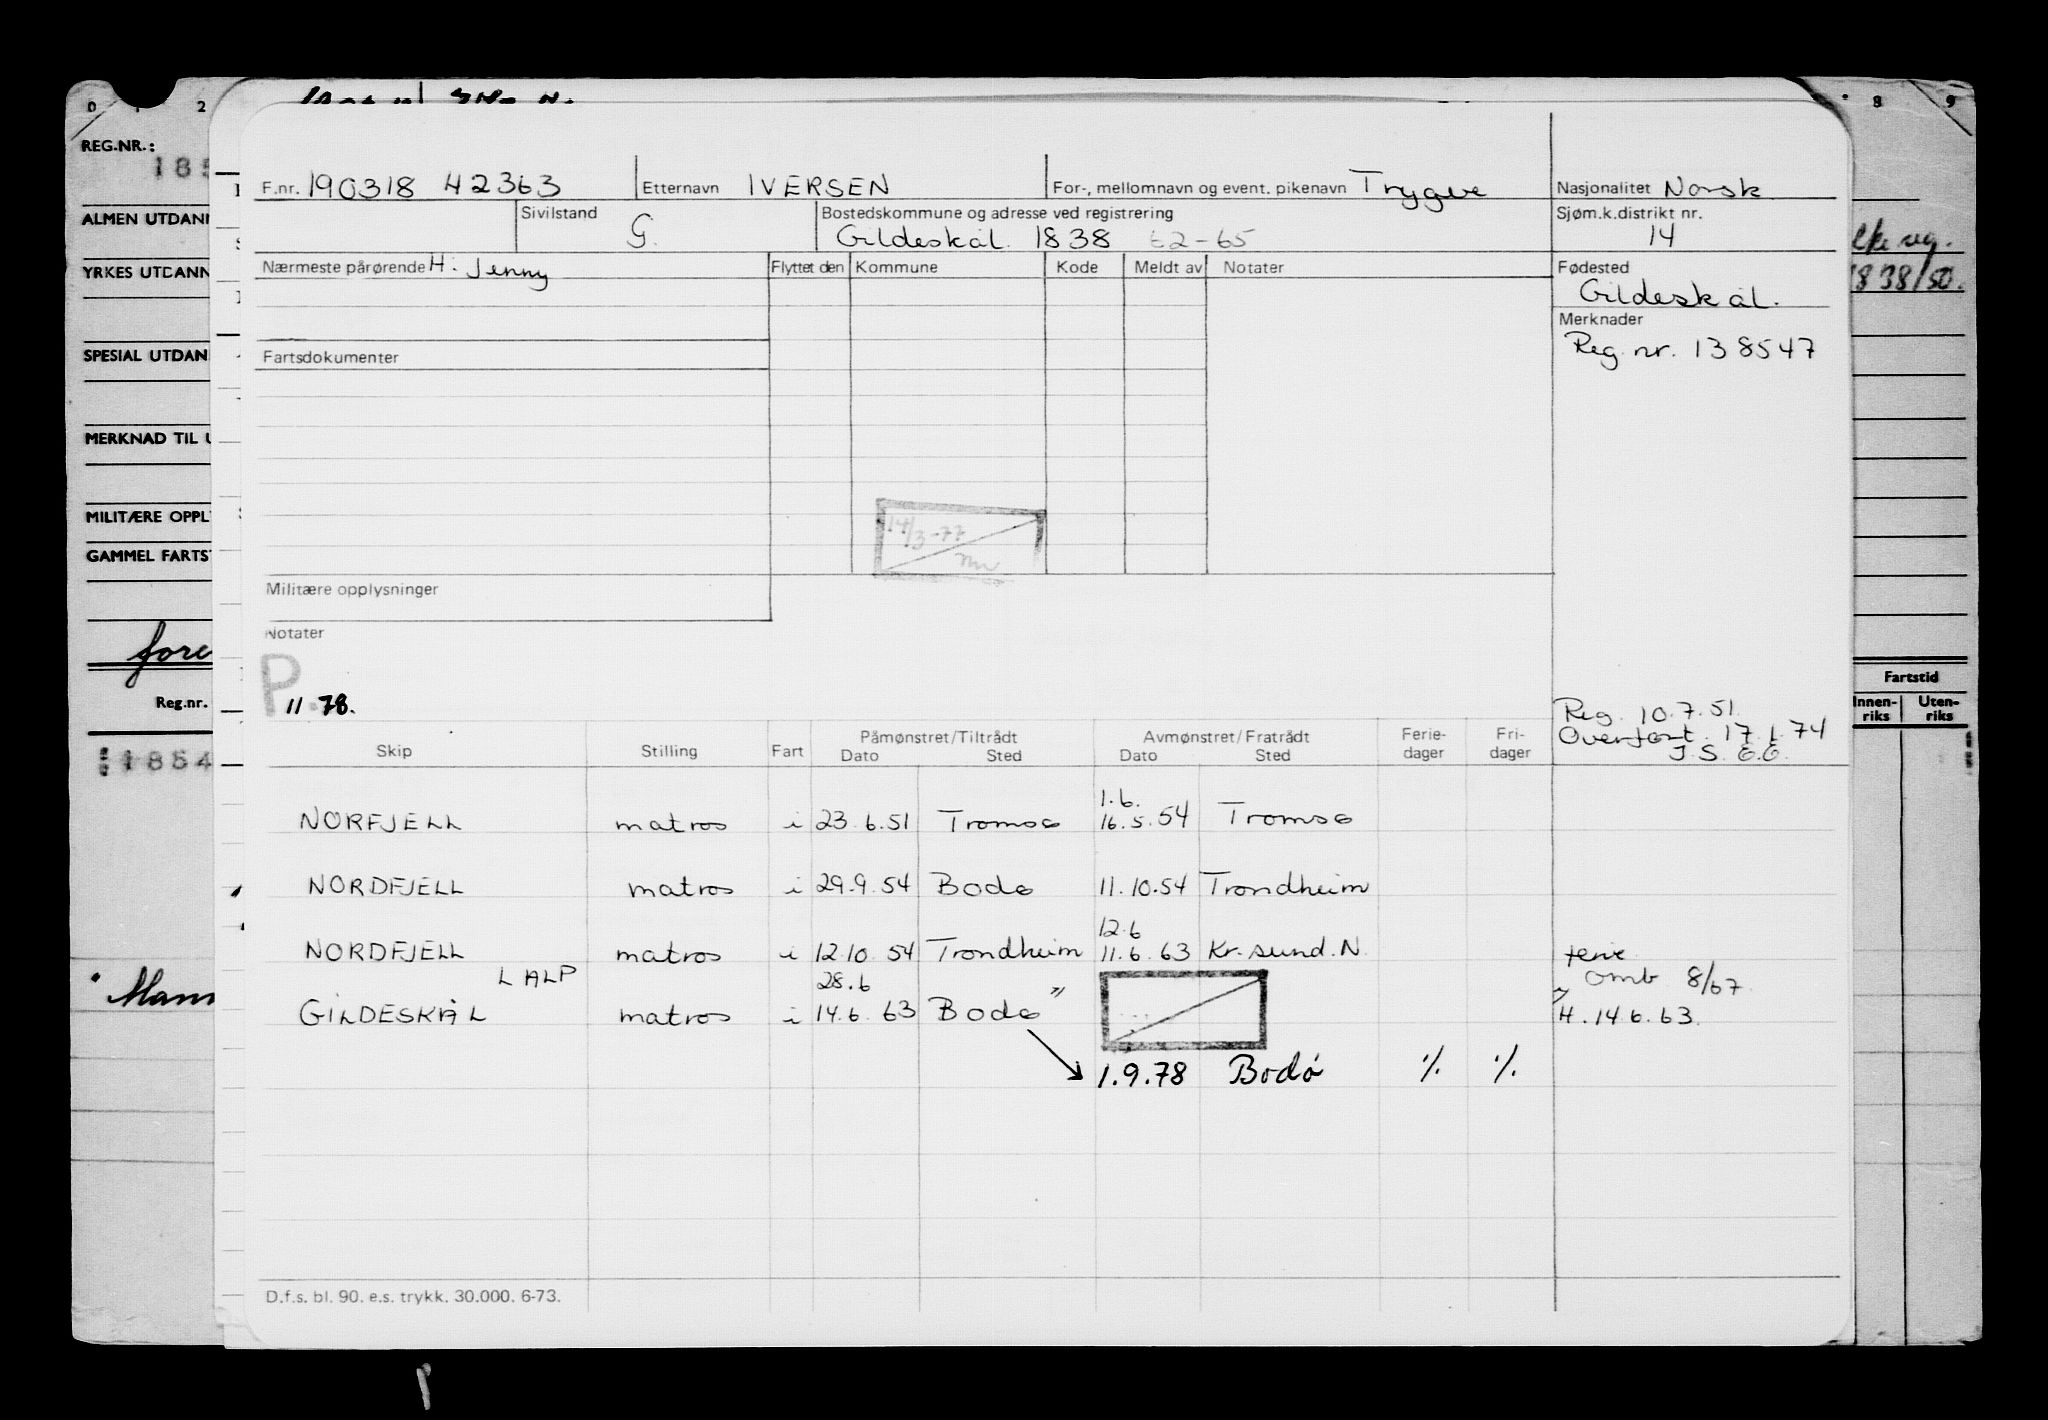 0 1 2 8 9
REG.NR.:
185
ALMEN UTDANN
YRKES UTDANN
SPESIAL UTDAN
MERKNAD TIL U
MILITÆRE OPPL
GAMMEL FARTST
fore
Reg.nr.
1854
Mann
1838/50.
Fartstid
Innen-riks Uten-riks
F.nr. 190318 42363 Etternavn IVERSEN For-, mellomnavn og event. pikenavn Trygve Nasjonalitet Norsk
Sivilstand G. Bostedskommune og adresse ved registrering Sjøm.k.distrikt nr.
Gildeskål. 1838 t2-65 14
Nærmeste pårørende H. Jenny Flyttet den Kommune Kode Meldt av Notater Fødested
Gildeskål.
Merknader
Reg. nr. 138547
Fartsdokumenter
14/3-77
Militære opplysninger
Notater
P.
11.78.
Reg. 10.7.51.
Overført. 17.1.74
J.S. G.G.
Skip Stilling Fart Påmønstret/Tiltrådt Avmønstret/Fratrådt Ferie-dager Fri-dager
Dato Sted Dato Sted
1.6.
NORFJELL matros i 23.6.51 Tromsø 16.5.54 Tromsø
NORDFJELL matros i 29.9.54 Bodø 11.10.54 Trondheim
12.6
NORDFJELL matros i 12.10.54 Trondheim 11.6.63 Kr.sund.N. ferie
LALP 28.6 omb 8/67
GILDESKÅL matros i 14.6.63 Bodø " H.14.6.63.
1.9.78 Bodø % %
D.f.s. bl. 90. e.s. trykk. 30.000. 6-73.